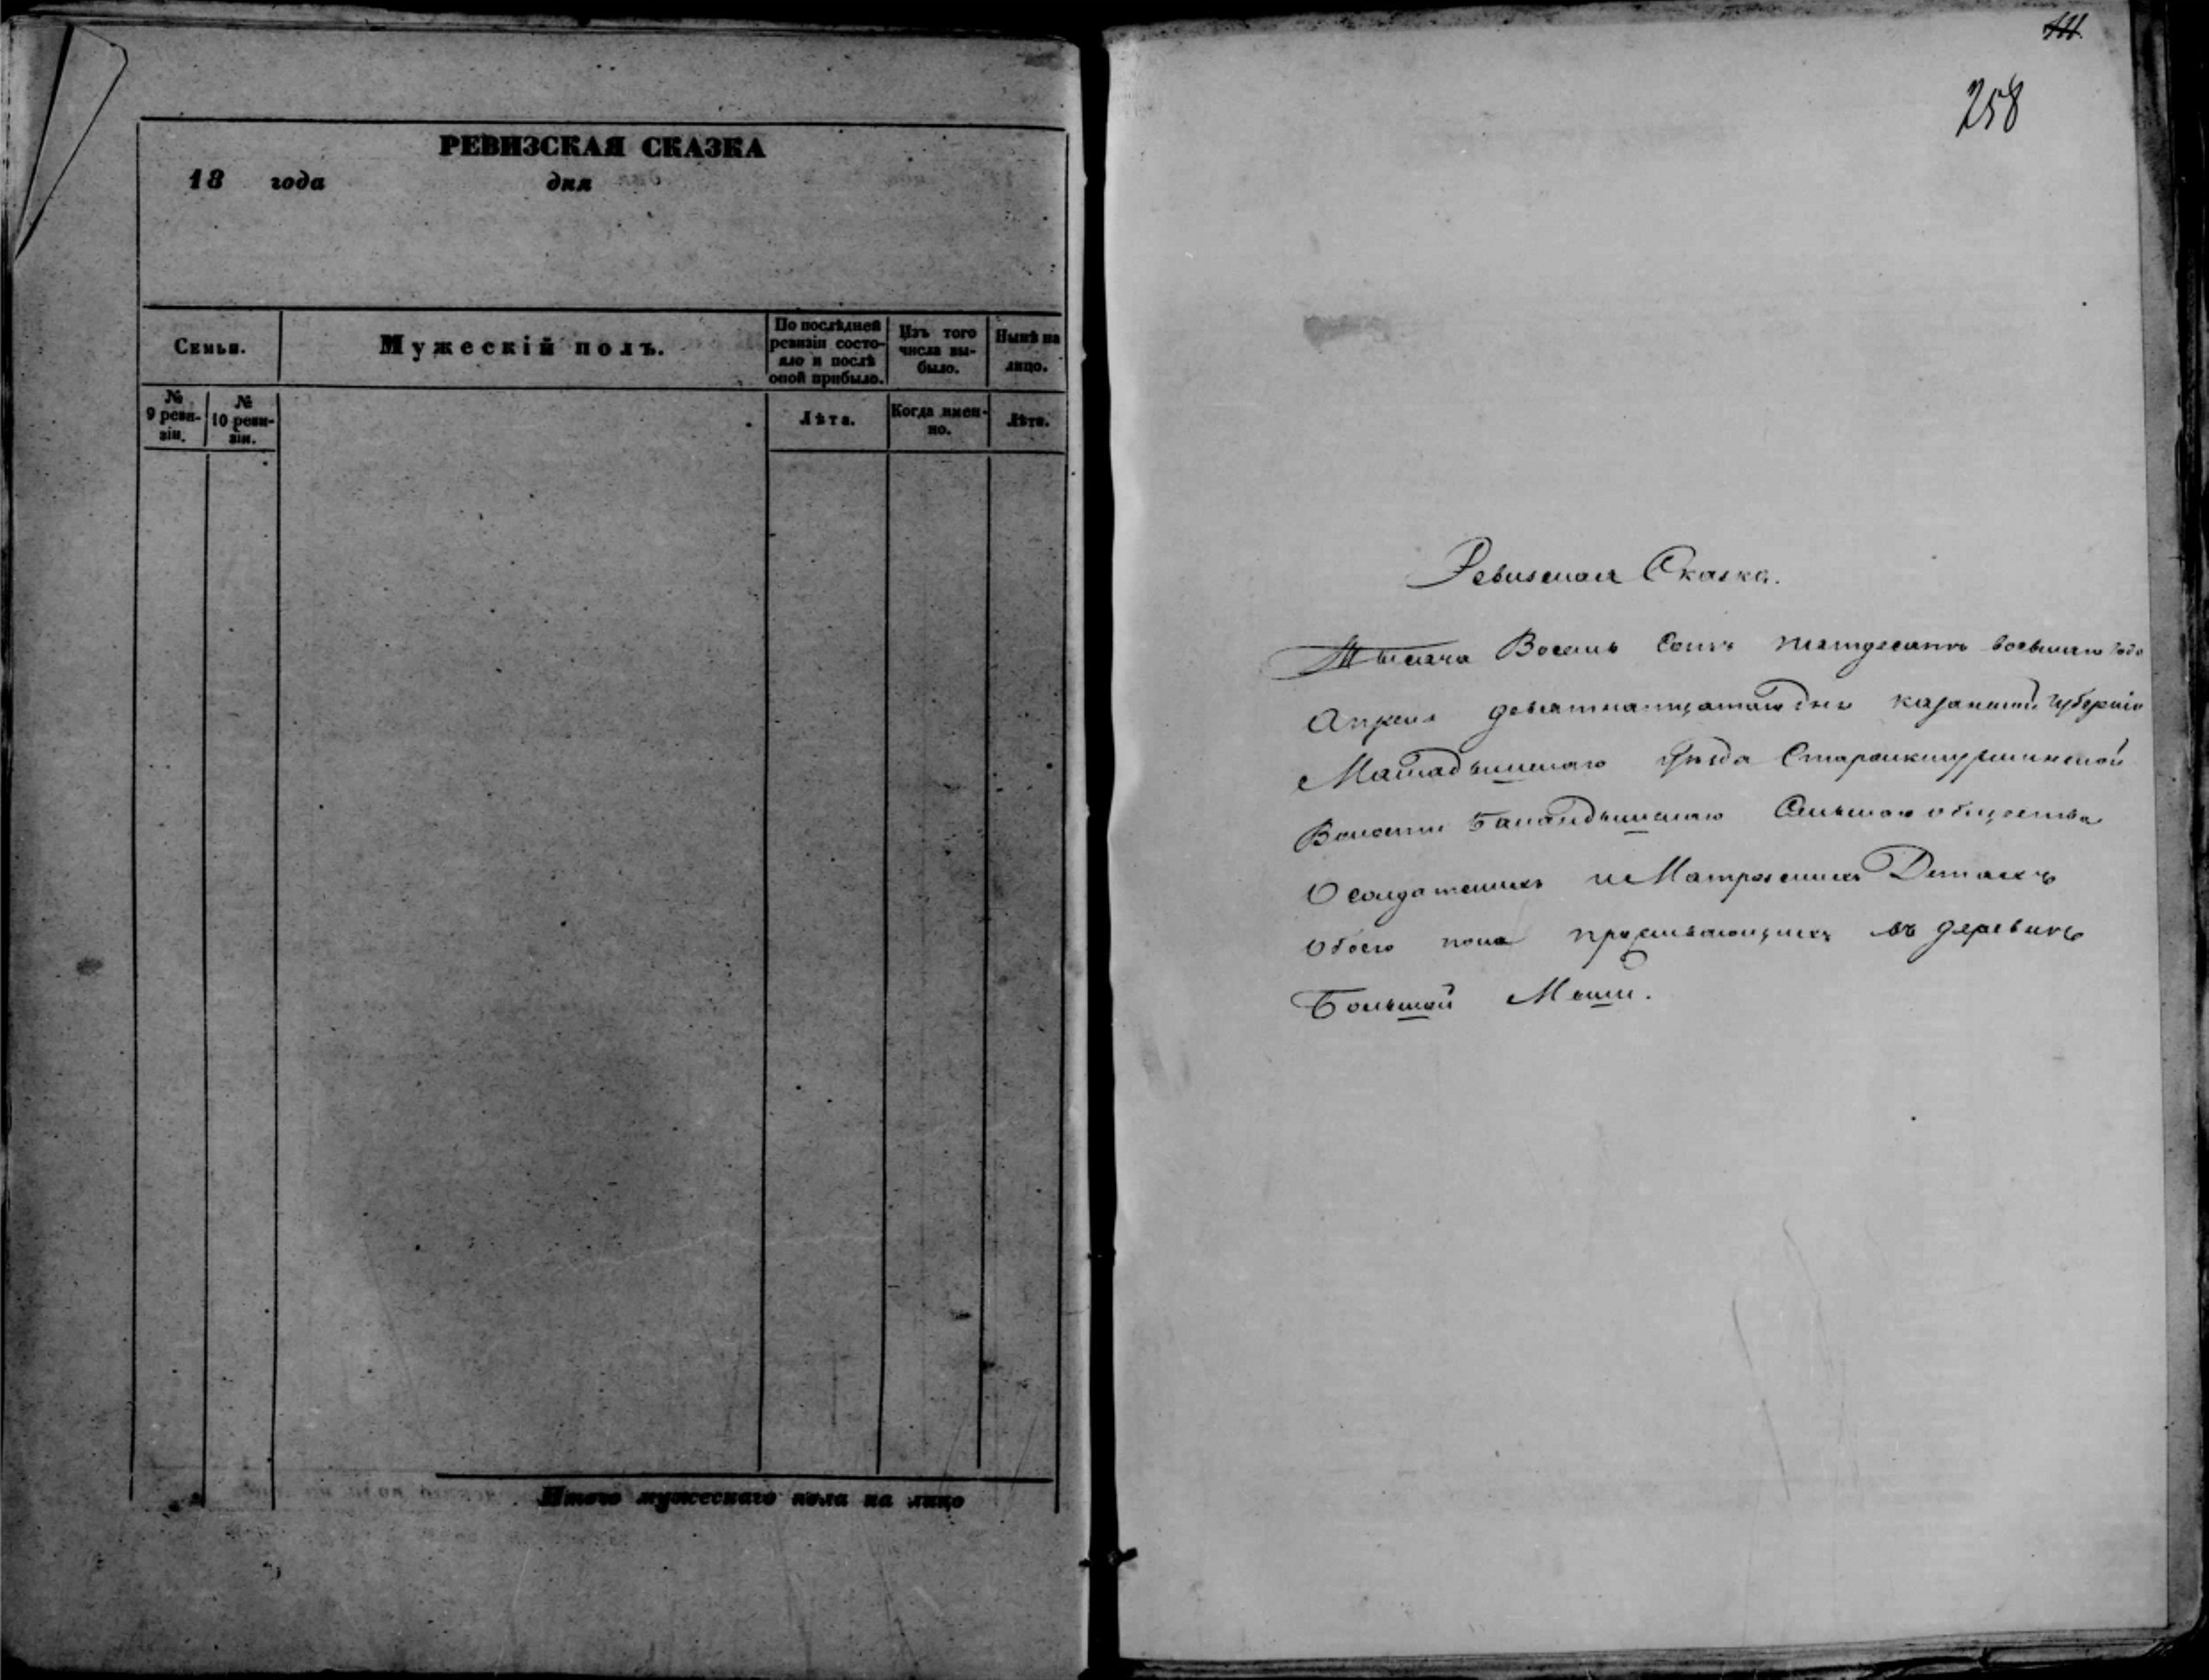 РЕВИЗСКАЯ СКАЗКА
18 года дня
Семьи.
Мужескій полъ.
По послѣдней ревизіи состояло и послѣ оной прибыло.
Изъ того числа выбыло.
Нынѣ на лицо.
№ 9 ревизіи.
№ 10 ревизіи.
Лѣта.
Когда именно.
Лѣта.
Итого мужескаго пола на лицо
258
Ревизская Сказка.
Тысяча Восемь Сотъ пятдесятъ восьмаго года
Апреля девятнатцатаго дня казанской губерніи
Мамадышскаго уѣзда Староикшурминской
Волости Сельскаго общества
О солдатскихъ и Матроскихъ Детяхъ
обоего пола проживающихъ въ деревнѣ
Большой Меши.